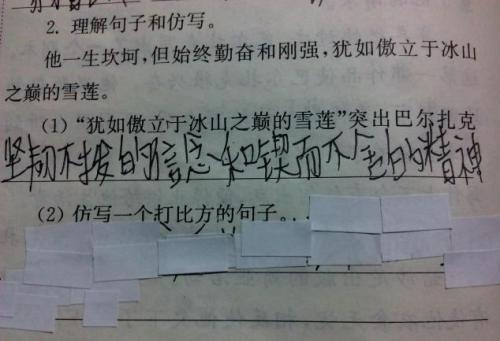 2. 理解句子和仿写。
他一生坎坷,但始终勤奋和刚强,犹如傲立于冰山
之巅的雪莲。
(1)“犹如傲立于冰山之巅的雪莲”突出巴尔扎克
坚韧不拔的信念和锲而不舍的精神
(2)仿写一个打比方的句子。